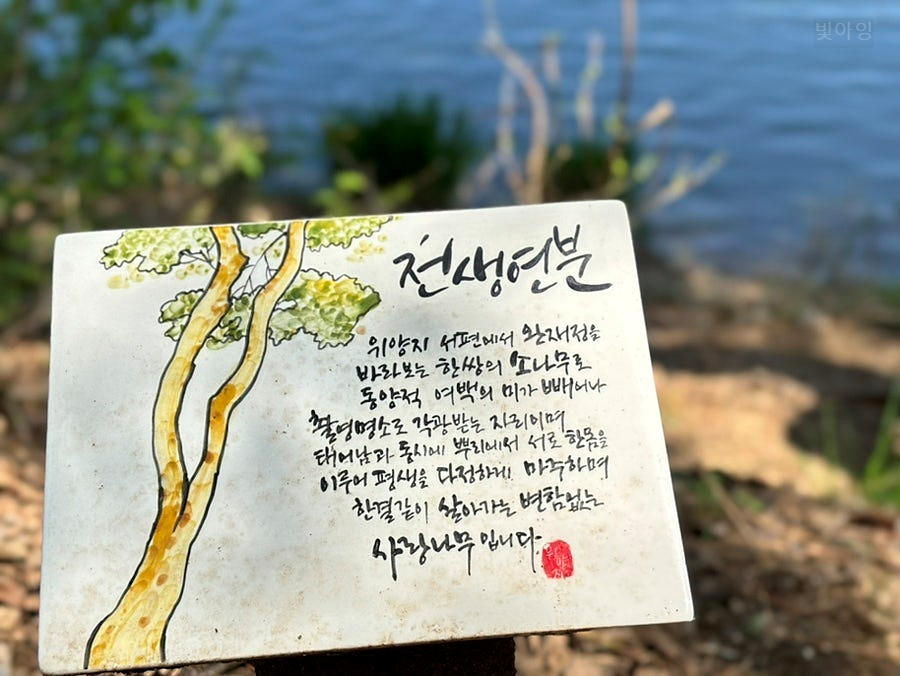 빛아잉
천생연분
위양지 서편에서 완재정을
바라보는 한쌍의 소나무로
동양적 여백의 미가 빼어나
촬영명소로 각광받는 자리이며
태어남과 동시에 뿌리에서 서로 한몸을
이루어 평생을 다정하게 마주하며
한결같이 살아가는 변함없는
사랑나무입니다.